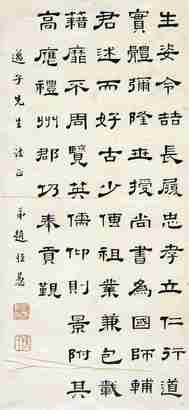 生姿令喆長履忠孝仁行道
實體彌隆並授尚書為國師輔
君述而好古少傳祖業兼包載
籍靡不周覽其儒仰則景附其
高應禮州郡仍奉貢覲
子先生法正
弟趙恆惕